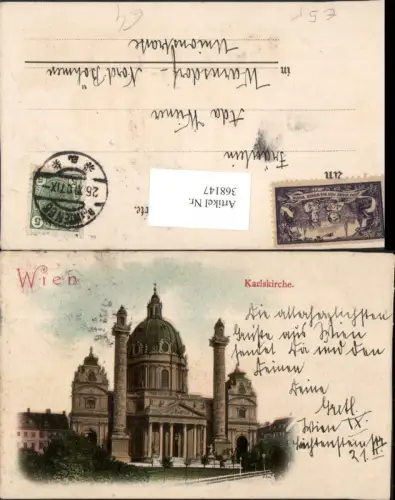 Fräulein
Ada Weiner
in Warnsdorf - Nord Böhmen
Unionstraße
Artikel Nr.
368147
Wien
Karlskirche.
Die allerherzlichsten
Grüße aus Wien
sendet Dir und den
Deinen
Deine
Gretl.
Wien IX.
Liechtensteinstr.
21.